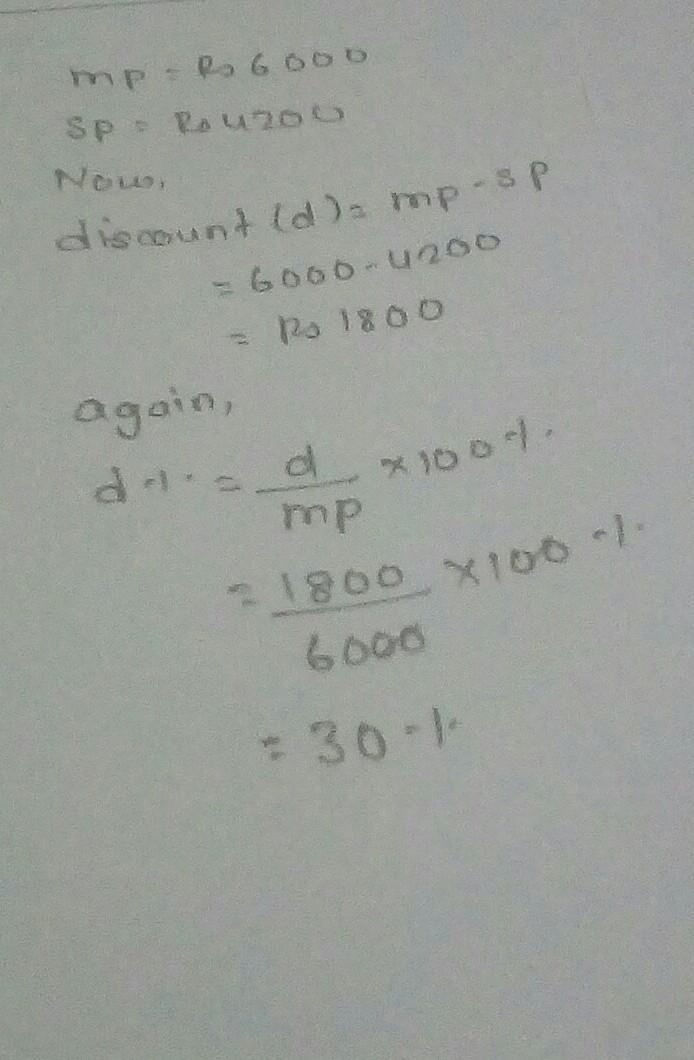 mp = Rs 6000
SP = Rs 4200
Now,
discount (d) = mp - SP
= 6000 - 4200
= Rs 1800
again,
d% = d/mp × 100%
= 1800/6000 × 100%
= 30%